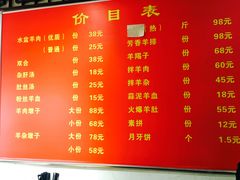 价目表
水盆羊肉（优质） 份 38元
（普通） 份 25元
双合 份 38元
杂肝汤 份 25元
肚丝汤 份 25元
粉丝羊血 份 15元
羊肉墩子 大份 88元
小份 68元
羊杂墩子 大份 78元
小份 58元
热） 斤 98元
芳香羊排 份 98元
羊蹄子 份 68元
拌羊肉 份 60元
拌羊杂 份 45元
蒜泥羊血 份 18元
火爆羊肚 份 55元
素拼 份 12元
月牙饼 个 1.5元